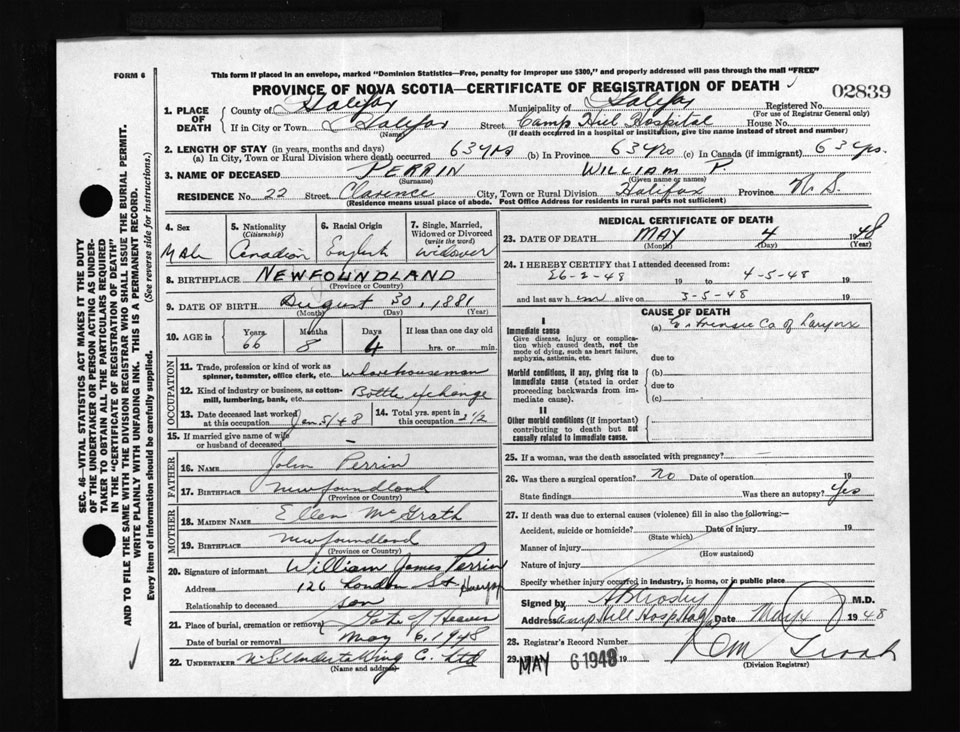 FORM 6
This form if placed in an envelope, marked "Dominion Statistics—Free, penalty for improper use $300," and properly addressed will pass through the mail "FREE"
PROVINCE OF NOVA SCOTIA—CERTIFICATE OF REGISTRATION OF DEATH
02839
1. PLACE OF DEATH
County of Halifax Municipality of Halifax Registered No.
(For use of Registrar General only)
If in City or Town Halifax Street Camp Hill Hospital House No.
(Name) (If death occurred in a hospital or institution, give the name instead of street and number)
2. LENGTH OF STAY (in years, months and days)
(a) In City, Town or Rural Division where death occurred 63 yrs (b) In Province 63 yrs (c) In Canada (if immigrant) 63 yrs.
3. NAME OF DECEASED PERRIN WILLIAM P.
(Surname) (Given name or names)
RESIDENCE No. 22 Street Clarence City, Town or Rural Division Halifax Province N.S.
(Residence means usual place of abode. Post Office Address for residents in rural parts not sufficient)
4. Sex
Male
5. Nationality
(Citizenship)
Canadian
6. Racial Origin
English
7. Single, Married, Widowed or Divorced
(write the word)
Widower
8. BIRTHPLACE NEWFOUNDLAND
(Province or Country)
9. DATE OF BIRTH August 30, 1881
(Month) (Day) (Year)
10. AGE in Years Months Days If less than one day old
66 8 4 hrs. or min.
OCCUPATION
11. Trade, profession or kind of work as spinner, teamster, office clerk, etc. Warehouseman
12. Kind of industry or business, as cotton-mill, lumbering, bank, etc. Bottle exchange
13. Date deceased last worked at this occupation Jan 5/48
14. Total yrs. spent in this occupation 3 1/2
15. If married give name of wife or husband of deceased —
FATHER
16. Name John Perrin
17. Birthplace Newfoundland
(Province or Country)
MOTHER
18. Maiden Name Ellen McGrath
19. Birthplace Newfoundland
(Province or Country)
20. Signature of informant William James Perrin
Address 126 London St Halifax
Relationship to deceased son
21. Place of burial, cremation or removal Gate of Heaven
Date of burial or removal May 6, 1948
22. UNDERTAKER N.S. Undertaking C. Ltd
(Name and address)
MEDICAL CERTIFICATE OF DEATH
23. DATE OF DEATH MAY 4 1948
(Month) (Day) (Year)
24. I HEREBY CERTIFY that I attended deceased from:
26-2-48 19 to 4-5-48 19
and last saw him alive on 3-5-48 19
CAUSE OF DEATH
I
Immediate cause
Give disease, injury or complication which caused death, not the mode of dying, such as heart failure, asphyxia, asthenia, etc.
(a) Extrinsic Ca of Larynx
due to
Morbid conditions, if any, giving rise to immediate cause (stated in order proceeding backwards from immediate cause).
(b)
due to
(c)
II
Other morbid conditions (if important) contributing to death but not causally related to immediate cause.
25. If a woman, was the death associated with pregnancy? —
26. Was there a surgical operation? no Date of operation 19
State findings Was there an autopsy? Yes
27. If death was due to external causes (violence) fill in also the following:—
Accident, suicide or homicide? Date of injury 19
(State which)
Manner of injury
(How sustained)
Nature of injury
Specify whether injury occurred in industry, in home, or in public place
Signed by M.D.
Address Camp Hill Hospital Date May 1948
28. Registrar's Record Number
29. MAY 6 1948 19
(Division Registrar)
SEC. 46—VITAL STATISTICS ACT MAKES IT THE DUTY
OF THE UNDERTAKER OR PERSON ACTING AS UNDER-
TAKER TO OBTAIN ALL THE PARTICULARS REQUIRED
IN THE "CERTIFICATE OF REGISTRATION OF DEATH"
AND TO FILE THE SAME WITH THE DIVISION REGISTRAR WHO SHALL ISSUE THE BURIAL PERMIT.
WRITE PLAINLY WITH UNFADING INK. THIS IS A PERMANENT RECORD.
Every item of information should be carefully supplied. (See reverse side for instructions.)